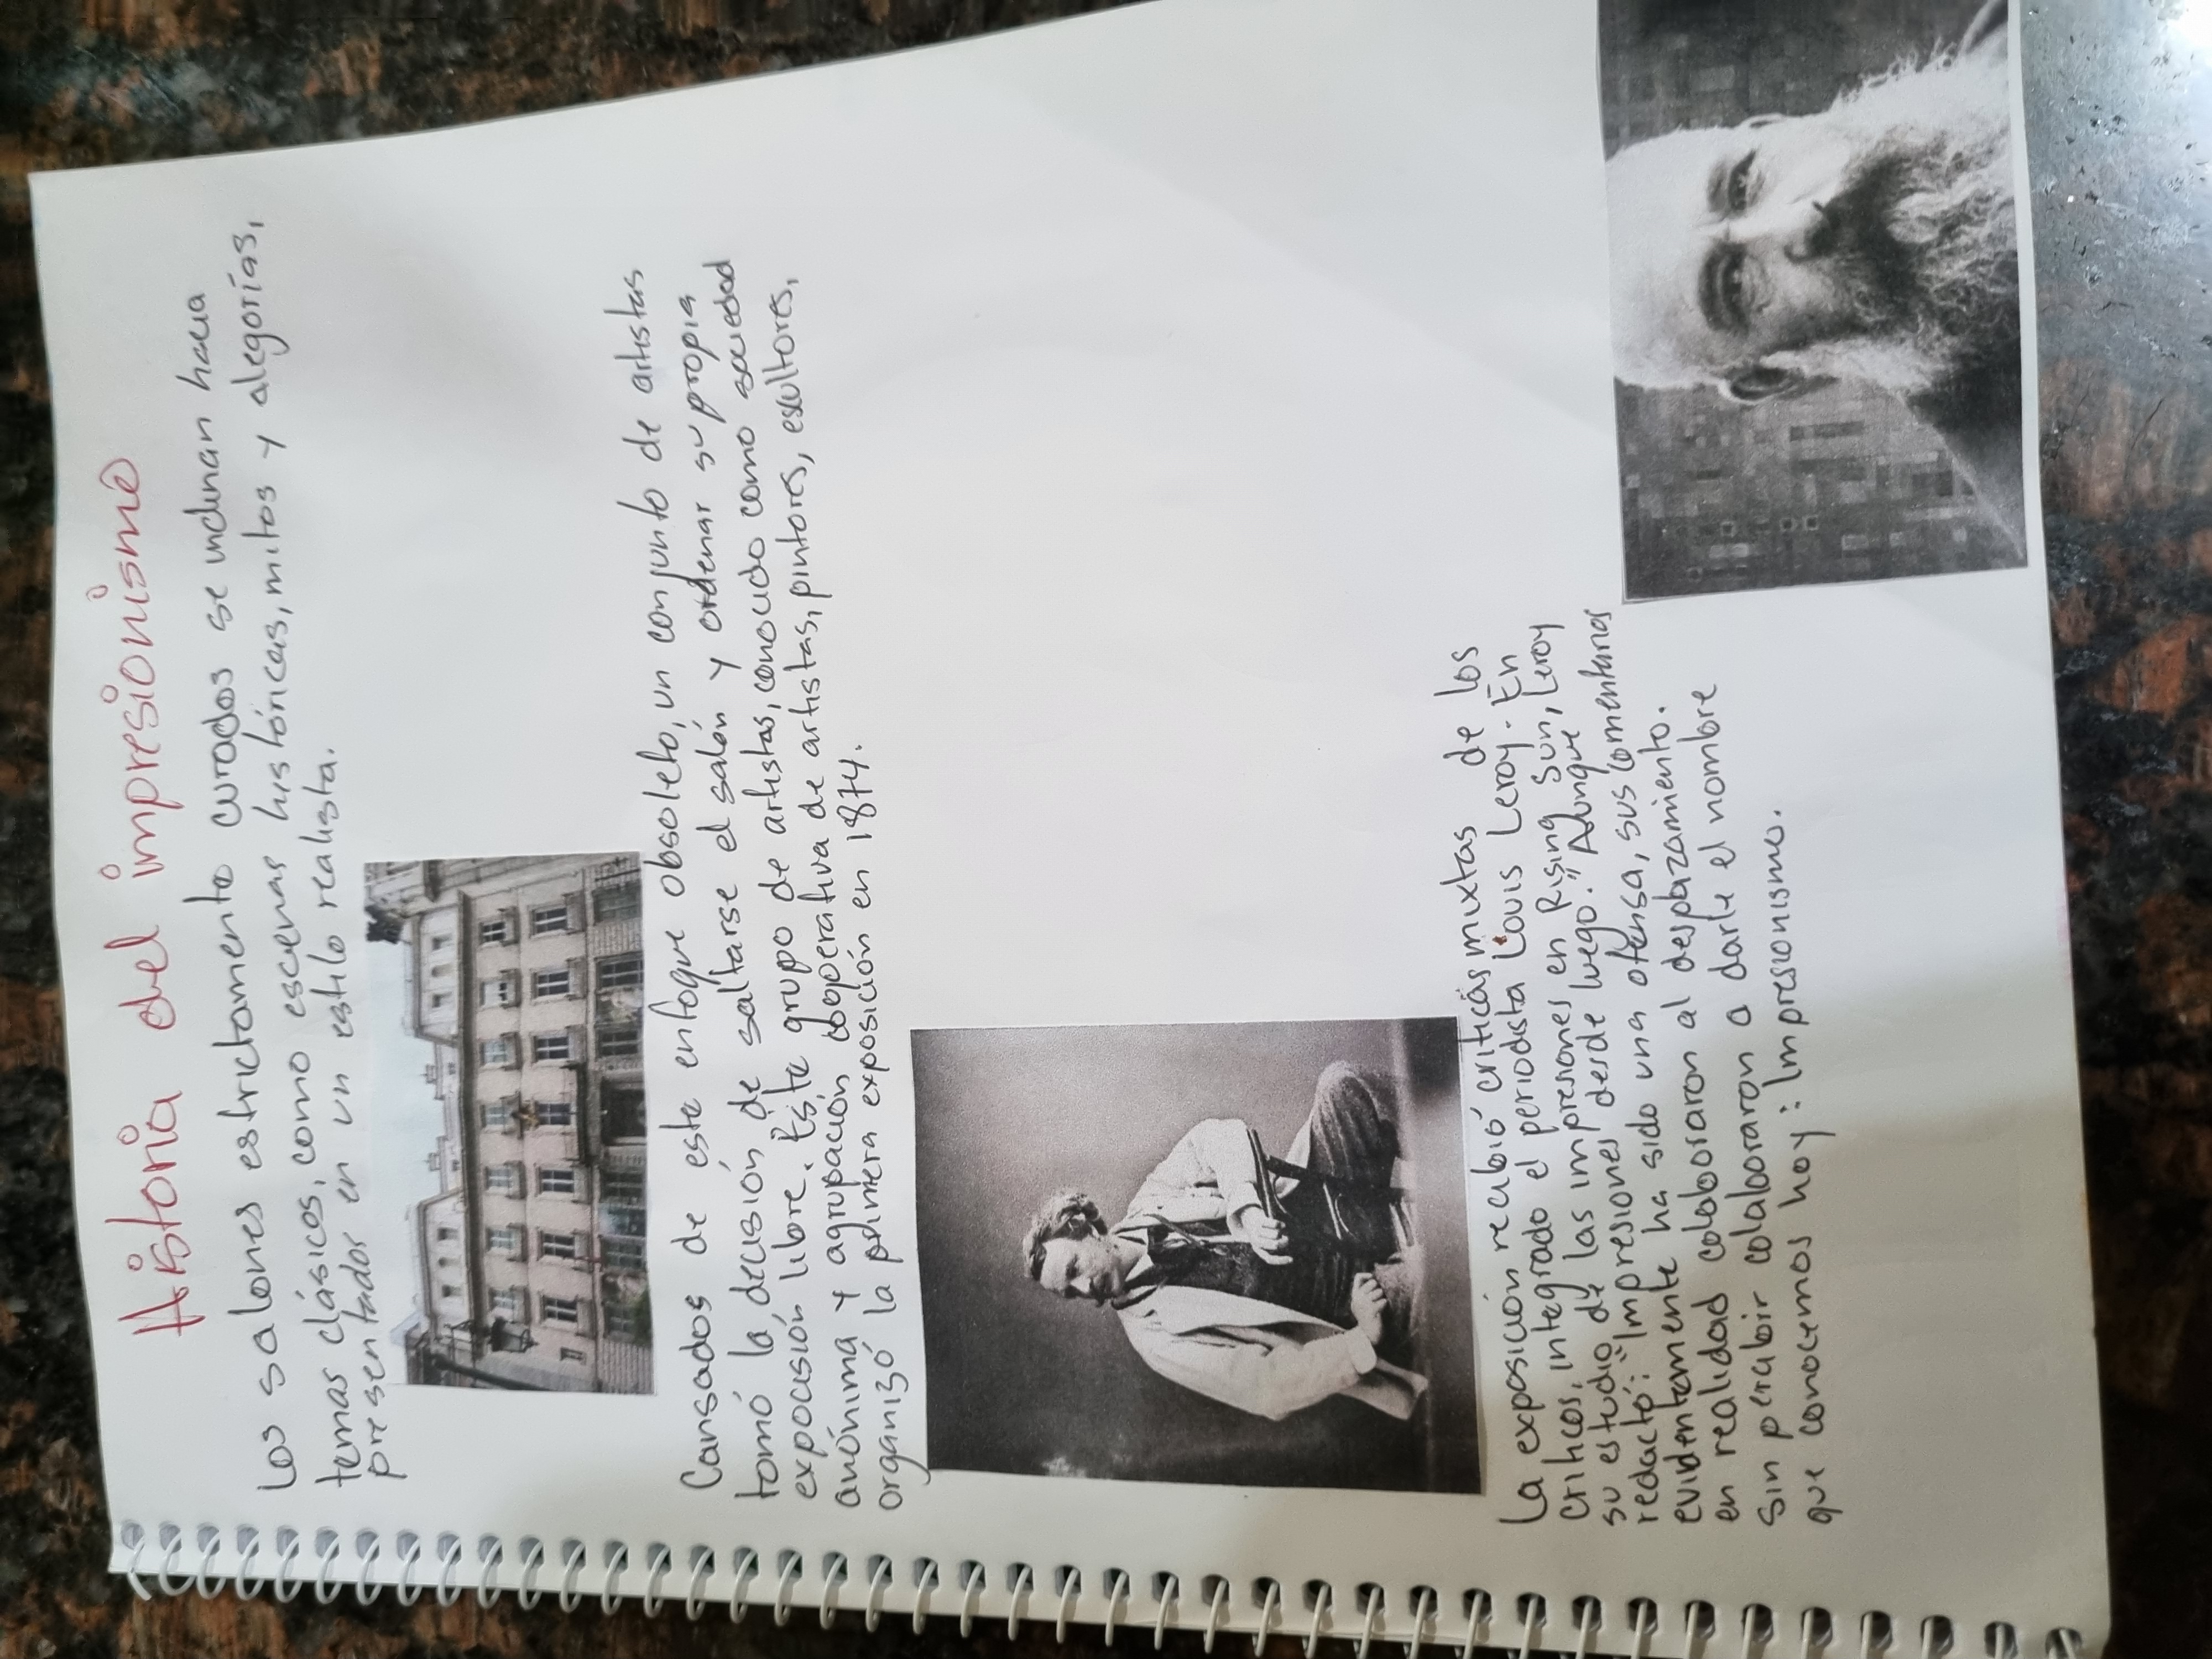 Historia del impresionismo
Los salones estrictamento curados se inclinan hacia
temas clásicos, como escenas históricas, mitos y alegorías,
presentados en un estilo realista.
Cansados de este enfoque obsoleto, un conjunto de artistas
tomó la decisión de saltarse el salón y ordenar su propia
exposición libre. Este grupo de artistas, conocido como sociedad
anónima y agrupación cooperativa de artistas, pintores, escultores,
organizó la primera exposición en 1874.
La exposición recibió críticas mixtas de los
críticos, integrado el periodista Louis Leroy. En
su estudio de las impresiones en Rising Sun, Leroy
redactó: "Impresiones desde luego." Aunque
evidentemente ha sido una ofensa, sus comentarios
en realidad colaboraron al desplazamiento.
sin percibir colaboraron a darle el nombre
que conocemos hoy: Impresionismo.